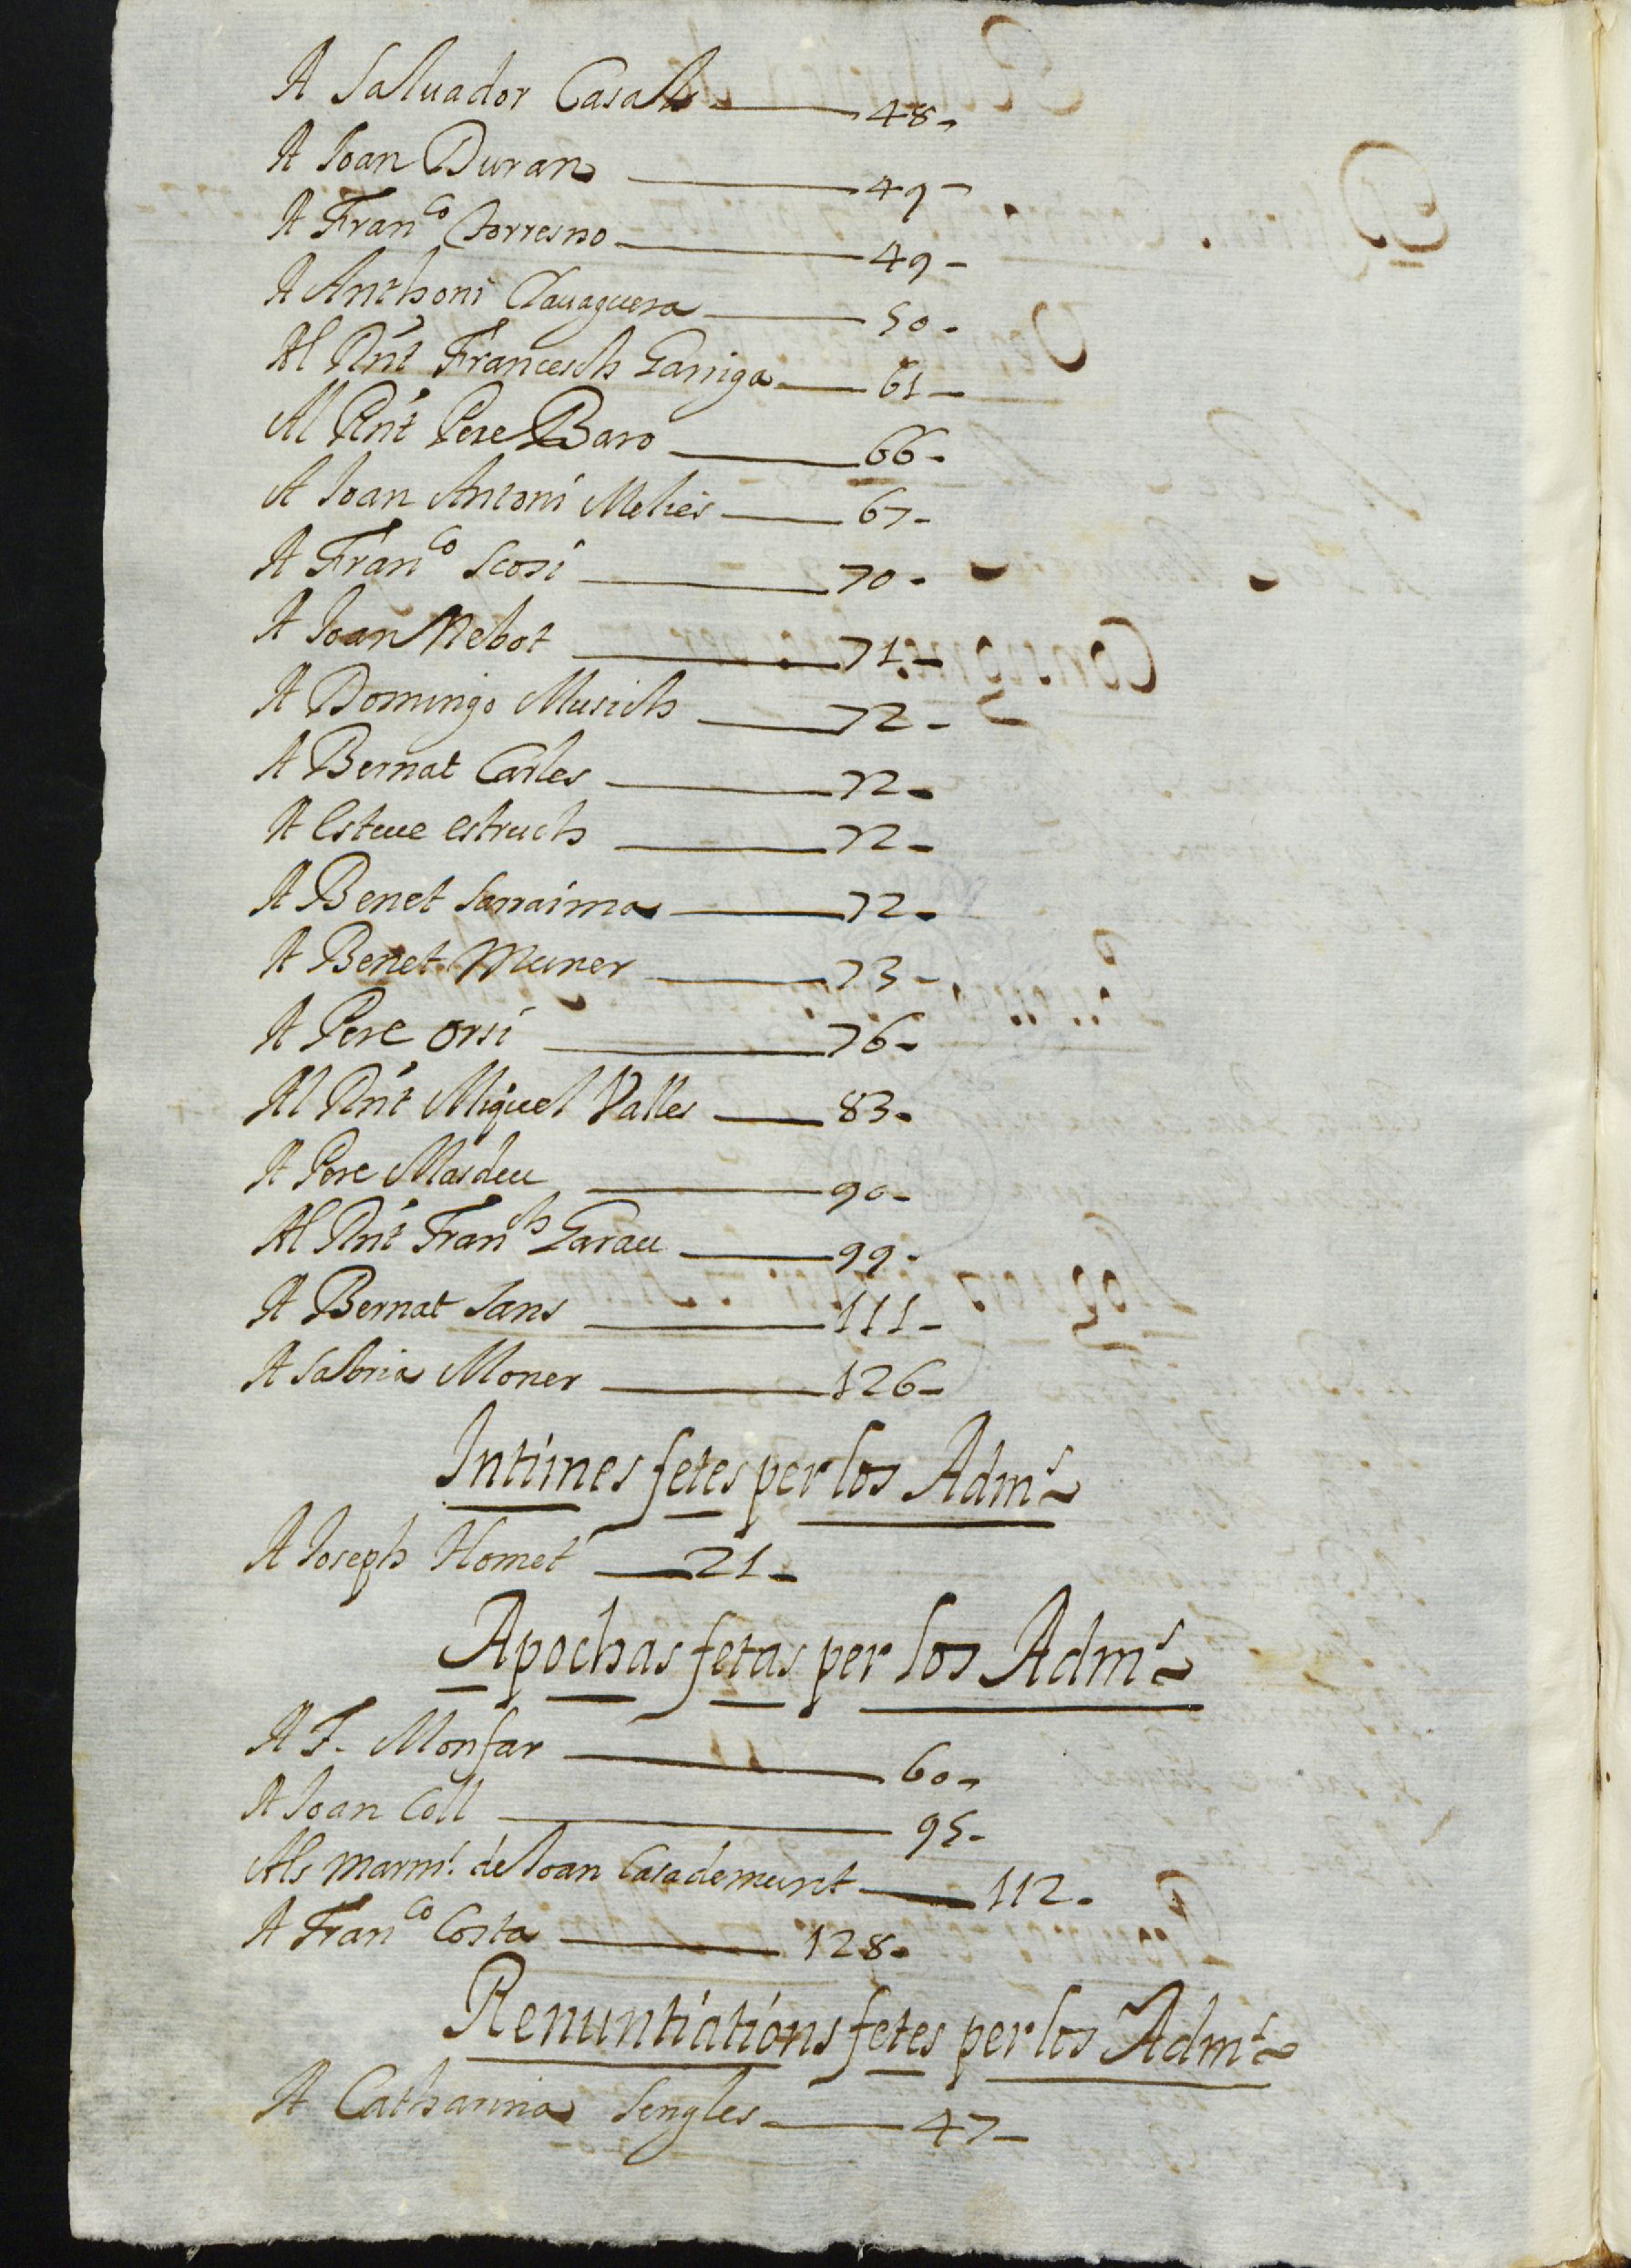 A Saluador Casals — 48 -
A Joan Duran — 49 -
A Fran.co Torresno — 49 -
A Anthoni Clauaguera — 50 -
Al Rnt Francesch Garriga — 61 -
Al Rnt Pere Baro — 66 -
A Joan Antoni Melies — 67 -
A Fran.co Scosi — 70 -
A Joan Nebot — 71 -
A Domingo Musich — 72 -
A Bernat Carles — 72 -
A Esteue estruch — 72 -
A Benet Sarraima — 72 -
A Benet Muner — 73 -
A Pere Orsi — 76 -
Al Rnt Miquel Valles — 83 -
A Pere Masdeu — 90 -
Al Rnt Fran.ch Garau — 99 -
A Bernat Sans — 111 -
A Salbria Moner — 126 -
Intimes fetes per los Adm.s
A Joseph Homet — 21 -
Apochas fetas per los Adm.s
A F. Monfar — 60 -
A Joan Coll — 95 -
Als marm.s de Joan Casademunt — 112 -
A Fran.co Costa — 128 -
Renuntiations fetes per los Adm.s
A Catharina Sengles — 47 -